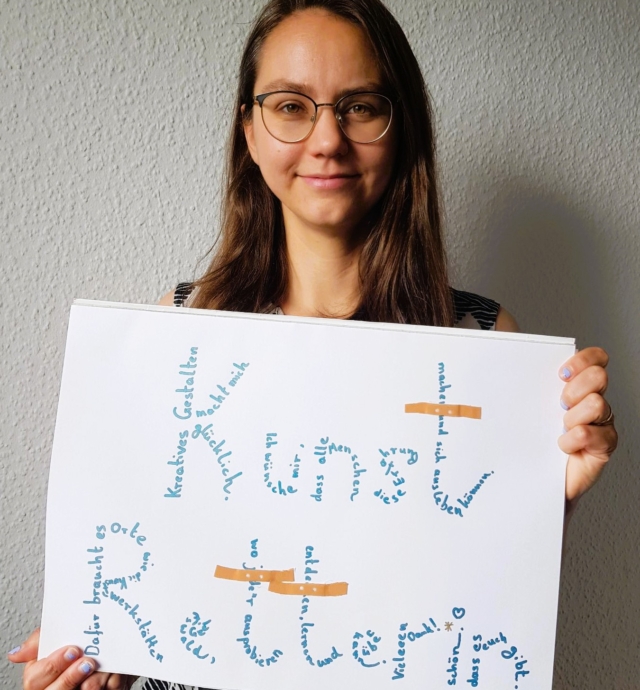 Kreatives Gestalten
macht mich
glücklich.
Ich wünsche mir,
dass alle Menschen
diese Erfahrung
machen und sich ausleben können.
Dafür braucht es Orte
wie die
werkstätten
wo jeder ausprobieren
entdecken, lernen und
Vieleeen Dank!
schön
dass es euch gibt.